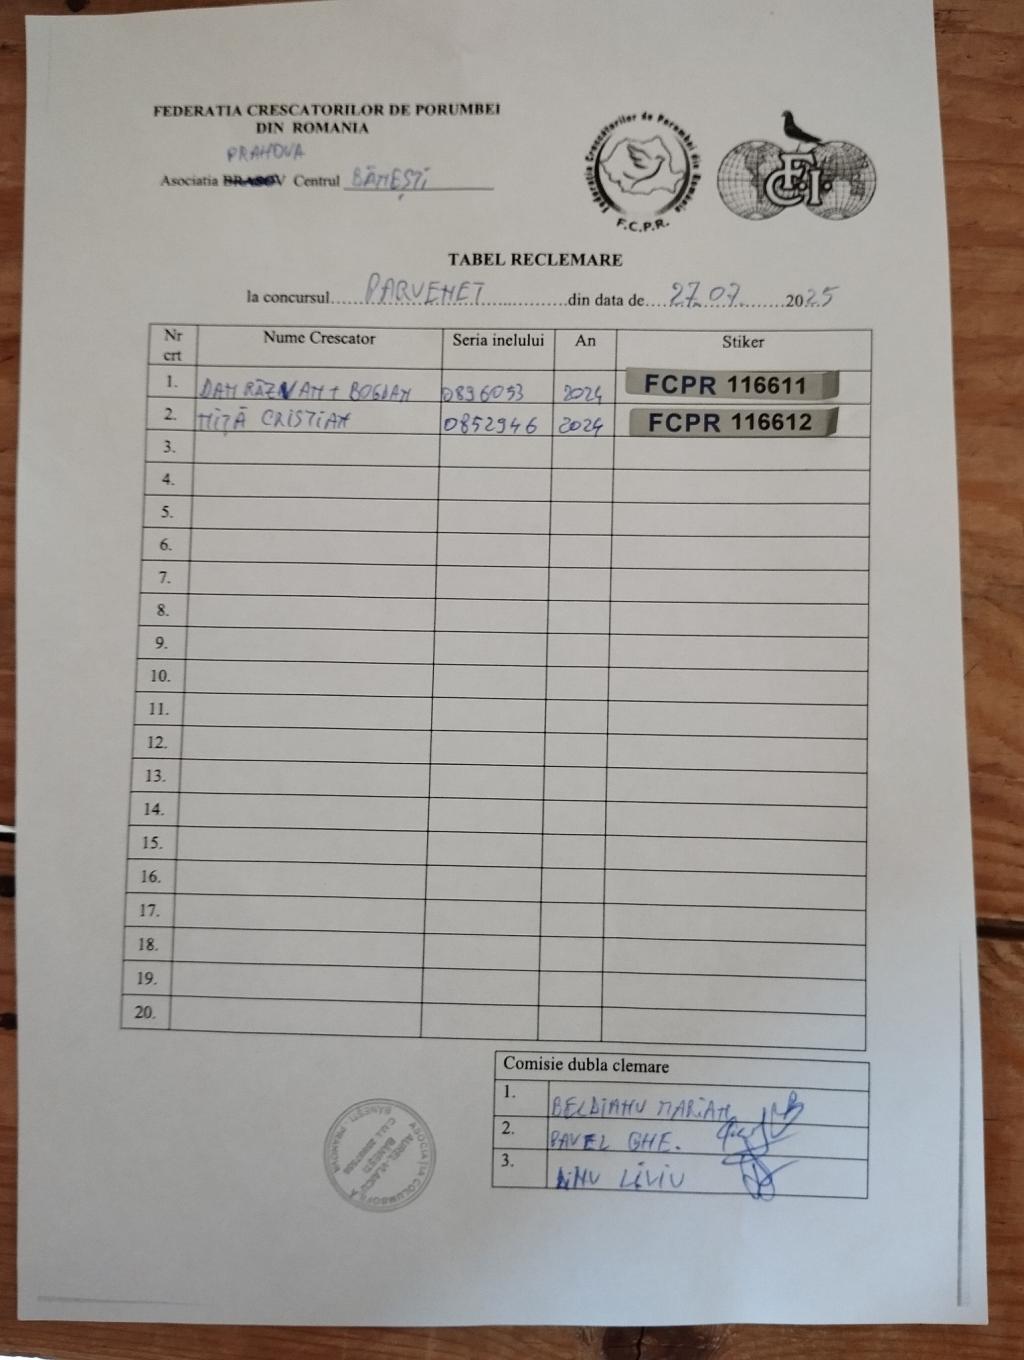 FEDERATIA CRESCATORILOR DE PORUMBEI
DIN ROMANIA
PRAHOVA
Asociatia BRASOV Centrul BĂNEȘTI
Federația Crescătorilor de Porumbei din România
F.C.P.R.
F.C.I.
TABEL RECLEMARE
la concursul......PARVENET..................din data de....27.07.......2025
Nr crt Nume Crescator Seria inelului An Stiker
1. DAN RĂZVAN + BOGDAN 0896053 2024 FCPR 116611
2. NIȚĂ CRISTIAN 0852946 2024 FCPR 116612
3.
4.
5.
6.
7.
8.
9.
10.
11.
12.
13.
14.
15.
16.
17.
18.
19.
20.
Comisie dubla clemare
1. BELDIANU MARIAN
2. PAVEL GHE.
3. DINU LIVIU
ASOCIAȚIA COLUMBOFILĂ
BĂNEȘTI - PRAHOVA
AUREL VLAICU
BĂNEȘTI